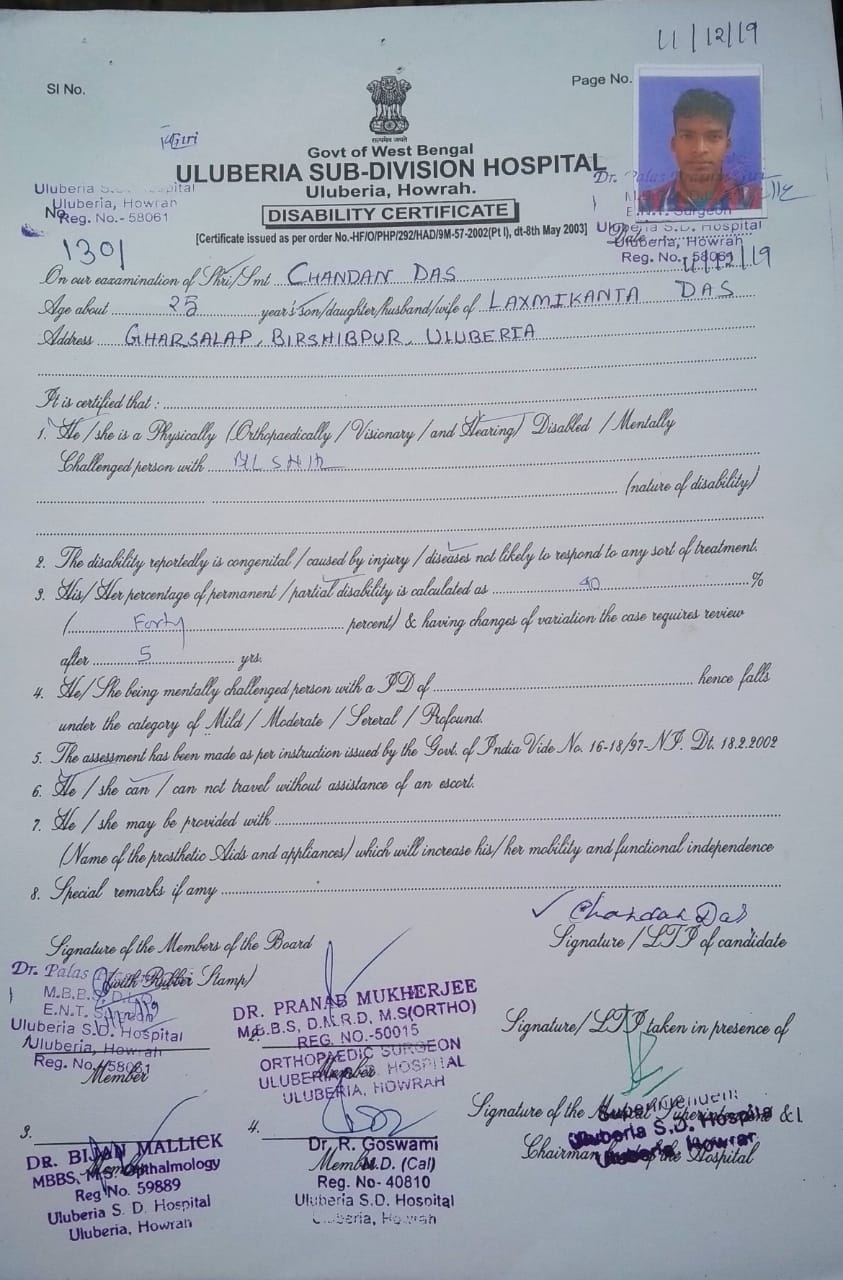 11/12/19
Sl No.
Page No.
सत्यमेव जयते
Giri
Govt of West Bengal
ULUBERIA SUB-DIVISION HOSPITAL
Uluberia, Howrah.
DISABILITY CERTIFICATE
[Certificate issued as per order No.-HF/O/PHP/292/HAD/9M-57-2002(Pt I), dt-8th May 2003]
Uluberia S.D. Hospital
Uluberia, Howrah
Reg. No.- 58061
No.
1301
Dr. Palas Giri
E.N.T. Surgeon
Uluberia S.D. Hospital
Uluberia, Howrah
Reg. No.- 58061
Date 11/12/19
On our eaxamination of Shri/Smt CHANDAN DAS
Age about 25 year's son/daughter/husband/wife of LAXMIKANTA DAS
Address GHARSALAP, BIRSHIBPUR, ULUBERIA
It is certified that :
1. He / she is a Physically (Orthopaedically / Visionary / and Hearing) Disabled / Mentally
Challenged person with
(nature of disability)
2. The disability reportedly is congenital / caused by injury / diseases not likely to respond to any sort of treatment.
3. His/ Her percentage of permanent / partial disability is calculated as 40 %
( Forty percent) & having changes of variation the case requires review
after 5 yrs.
4. He/ She being mentally challenged person with a ID of hence falls
under the category of Mild / Moderate / Sereral / Profound.
5. The assessment has been made as per instruction issued by the Govt. of India Vide No. 16-18/97-NI. Dt. 18.2.2002
6. He / she can / can not travel without assistance of an escort.
7. He / she may be provided with
(Name of the prosthetic Aids and appliances) which will increase his/ her mobility and functional independence
8. Special remarks if amy
Chandan Das
Signature / LTI of candidate
Signature of the Members of the Board
(with Rubber Stamp)
Dr. Palas
M.B.B.S, D.L.O
E.N.T. Surgeon
Uluberia S.D. Hospital
Uluberia, Howrah
Reg. No.- 58061
Member
2.
DR. PRANAB MUKHERJEE
M.B.B.S, D.M.R.D, M.S(ORTHO)
REG. NO.-50015
ORTHOPAEDIC SURGEON
ULUBERIA S.D. HOSPITAL
ULUBERIA, HOWRAH
Member
Signature/ LTI taken in presence of
Signature of the Medical Superintendent & I
Chairman of the Hospital
Superintendent
Uluberia S.D. Hospital
Uluberia, Howrah
3.
DR. BIJAN MALLICK
MBBS, M.S. Opthalmology
Reg No. 59889
Uluberia S. D. Hospital
Uluberia, Howrah
Member
4.
Dr. R. Goswami
M.D. (Cal)
Reg. No- 40810
Uluberia S.D. Hospital
Uluberia, Howrah
Member